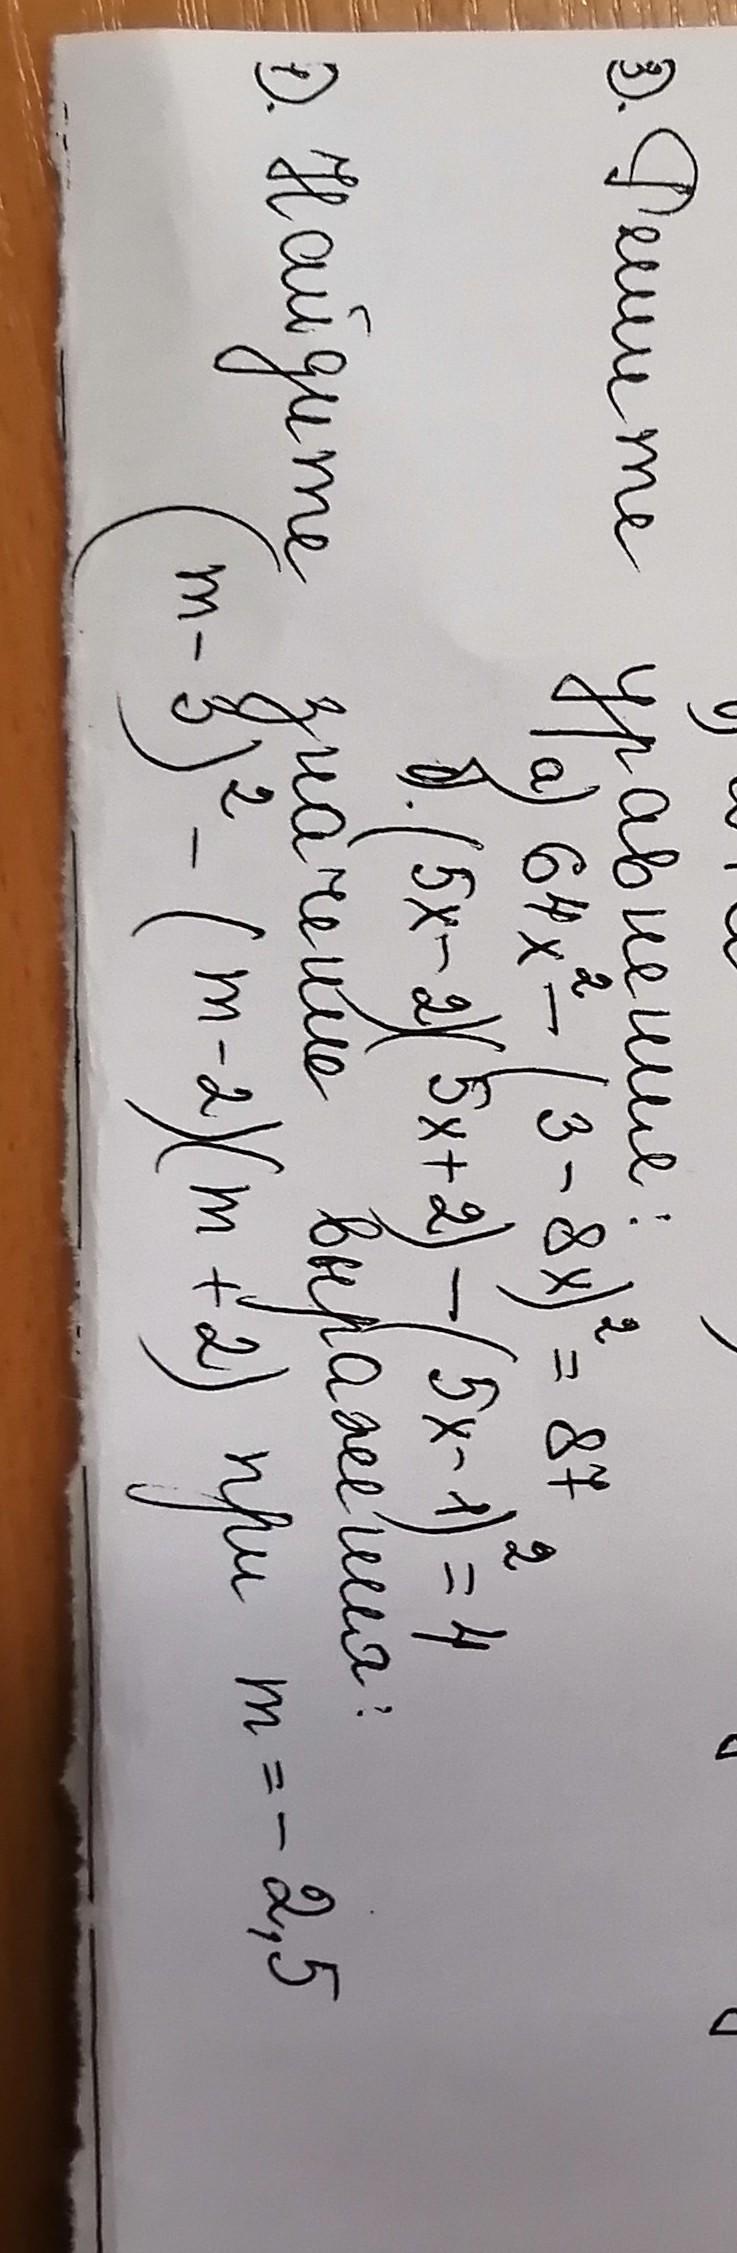 3). Решите уравнение:
а) 64x² - (3 - 8x)² = 87
б). (5x - 2)(5x + 2) - (5x - 1)² = 4
Найдите значение выражения:
(m - 3)² - (m - 2)(m + 2) при m = - 2,5